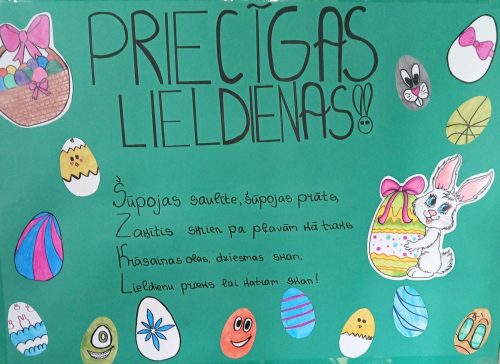 PRIECĪGAS
LIELDIENAS!!
Šūpojas saulīte, šūpojas prāts,
Zaķītis skrien pa pļavām kā traks
Krāsainas olas, dziesmas skan,
Lieldienu prieks lai katram skan!